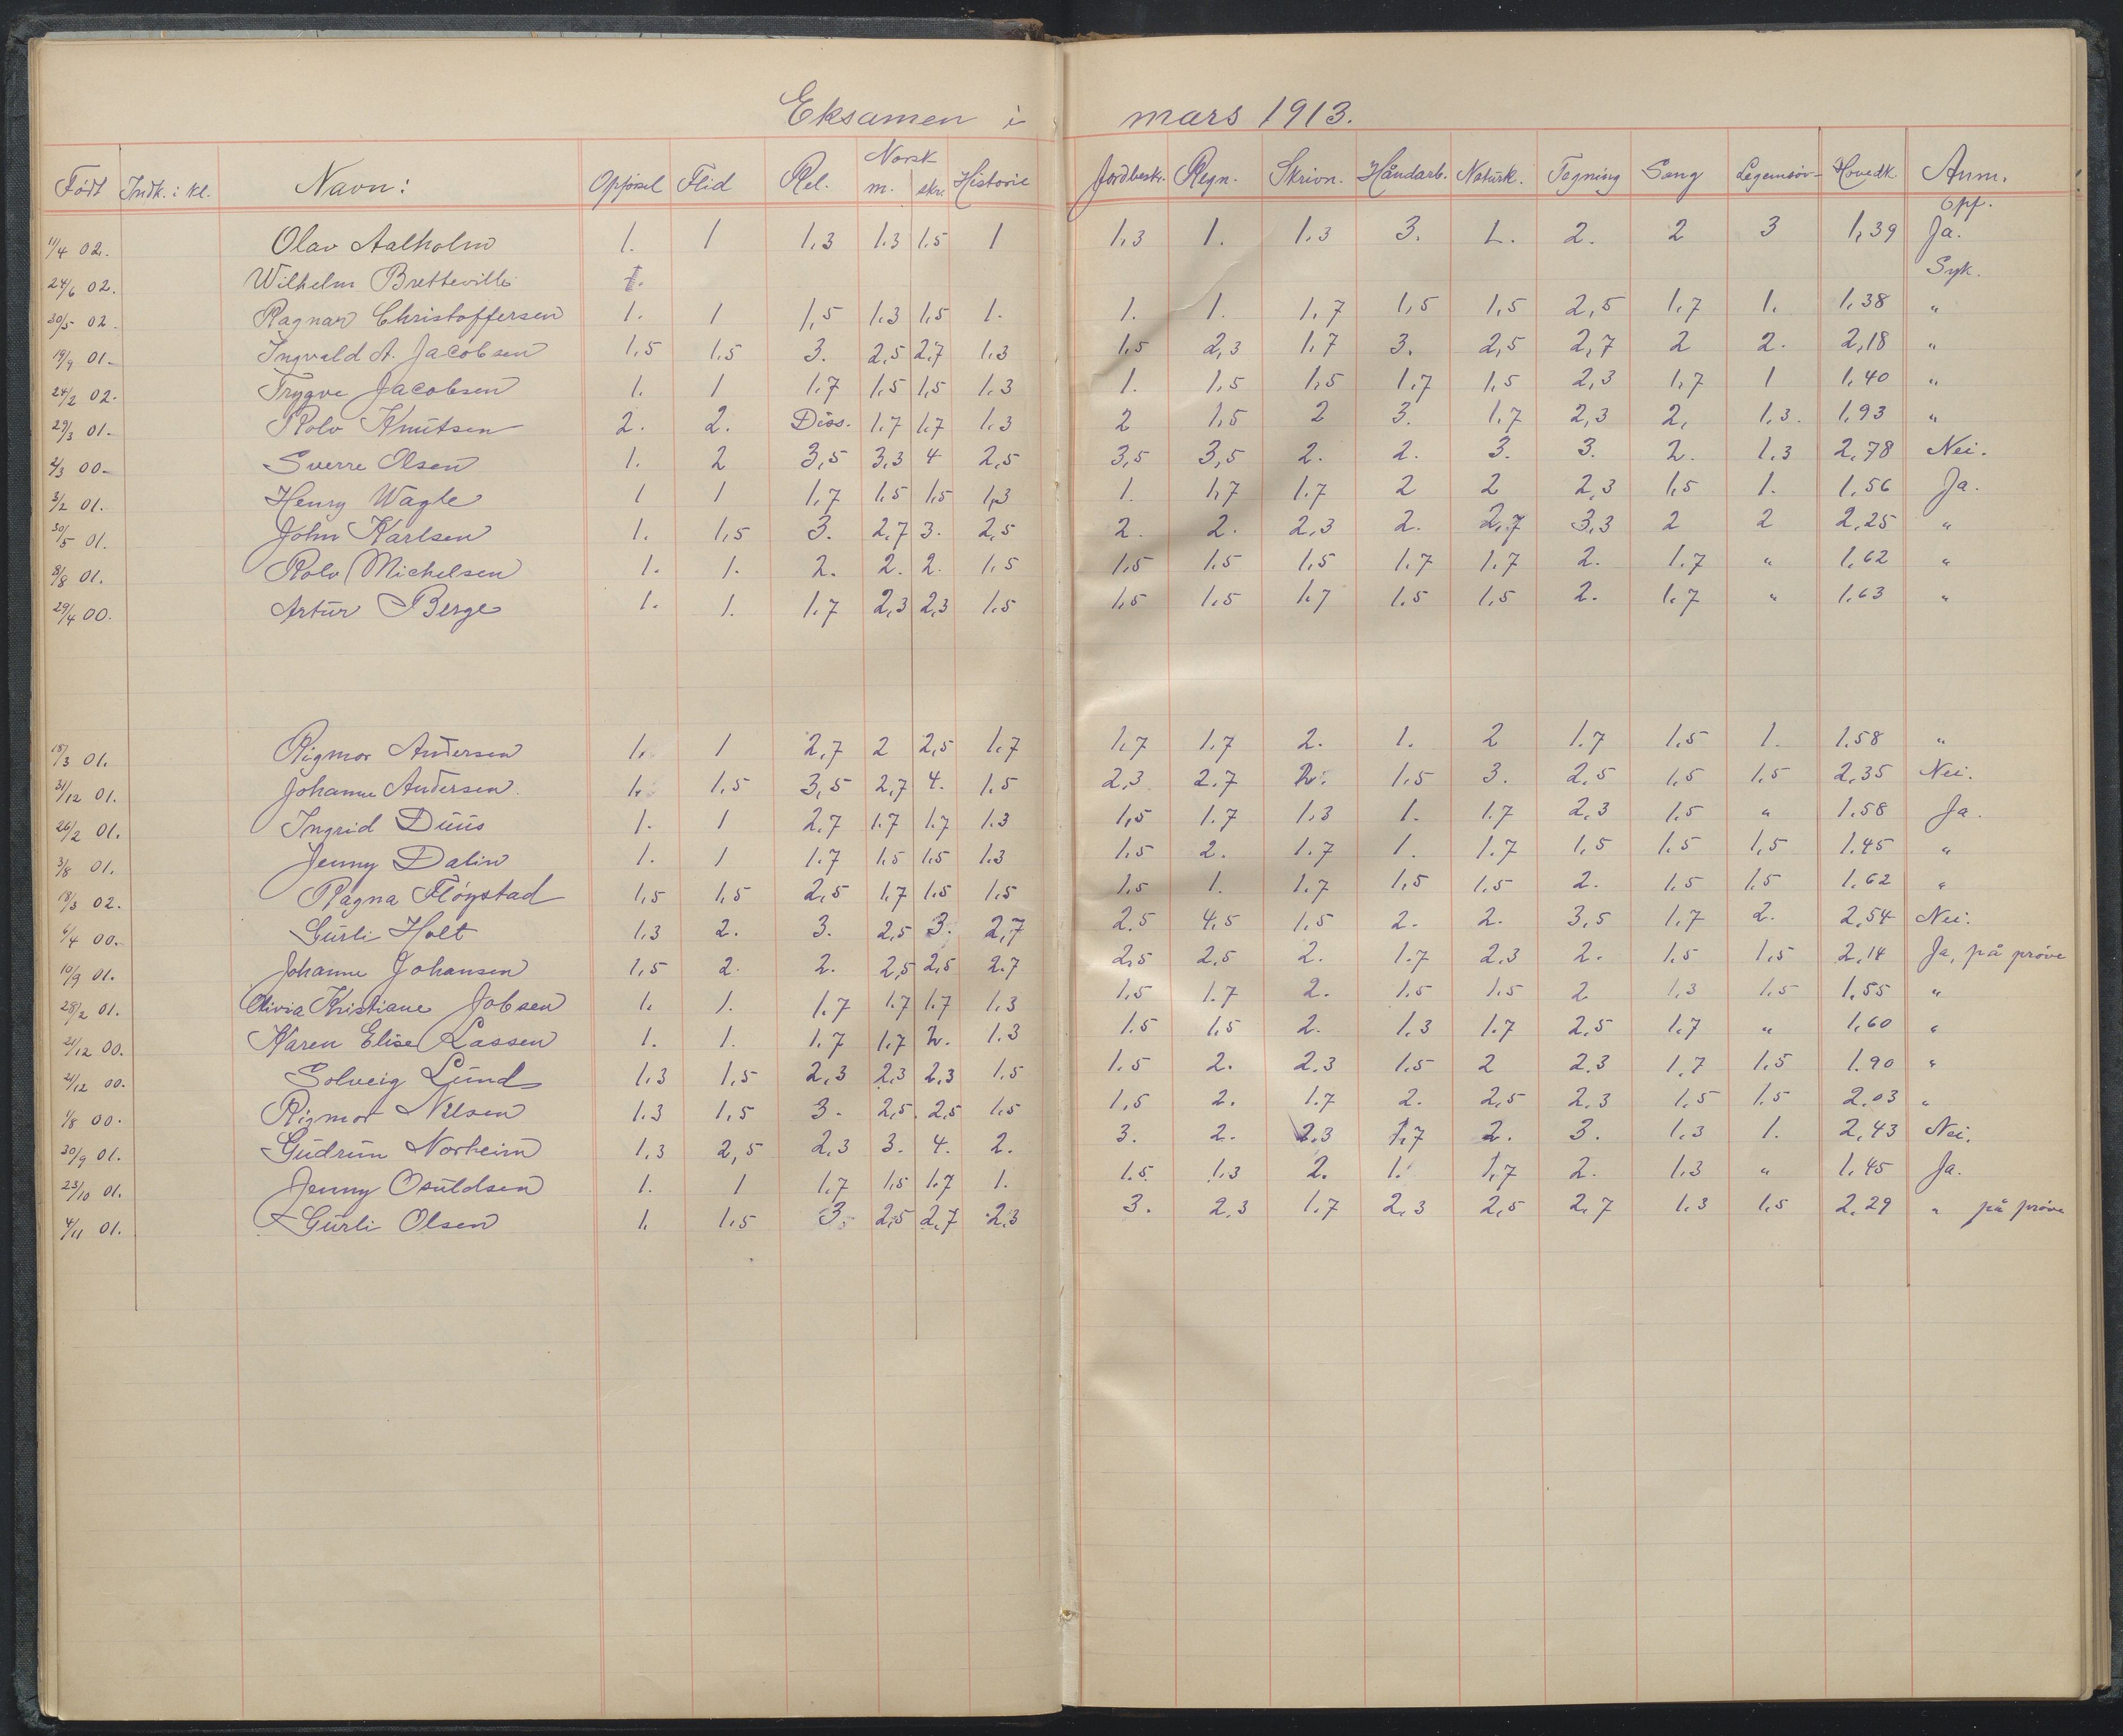 Eksamen i mars 1913.
Født Indk. i kl. Navn: Opførsel Flid Rel. Norsk m. skr. Historie Jordbeskr. Regn. Skrivn. Håndarb. Naturk. Tegning Sang Legemsøv- Hovedk. Anm.
Opf.
11/4 02. Olav Aalholm 1. 1 1,3 1.3 1.5 1 1,3 1. 1.3 3. 1. 2. 2 3 1,39 Ja.
24/6 02. Wilhelm Bretteville 1. Syk.
30/5 02. Ragnar Christoffersen 1. 1 1,5 1.3 1,5 1. 1. 1. 1,7 1,5 1,5 2,5 1,7 1. 1,38 "
19/9 01- Ingvald A. Jacobsen 1,5 1,5 3. 2,5 2,7 1,3 1,5 2,3 1.7 3. 2,5 2,7 2 2. 2,18 "
24/2 02. Trygve Jacobsen 1. 1 1,7 1,5 1,5 1,3 1. 1,5 1,5 1,7 1,5 2,3 1,7 1 1,40 "
29/3 01- Rolv Knutsen 2. 2. Diss. 1,7 1,7 1,3 2 1,5 2 3. 1,7 2,3 2, 1,3. 1,93 "
2/3 00- Sverre Olsen 1. 2 3,5 3,3 4 2,5 3,5 3,5 2. 2. 3. 3. 2. 1.3 2,78 Nei.
3/2 01. Henry Wagle 1 1 1,7 1,5 1,5 1,3 1. 1,7 1.7 2 2 2,3 1,5 1. 1,56 Ja.
30/5 01. John Karlsen 1. 1,5 3. 2,7 3. 2,5 2. 2. 2,3 2. 2,7 3,3 2 2 2,25 "
8/8 01. Rolv Michelsen 1. 1. 2. 2. 2. 1,5 1,5 1.5 1,5 1.7 1.7 2. 1.7 " 1,62 "
29/4 00. Artur Berge 1. 1. 1.7 2,3 2,3 1.5 1,5 1.5 1.7 1.5 1,5 2. 1.7 " 1.63 "
18/3 01. Rigmor Andersen 1. 1 2,7 2 2,5 1.7 1.7 1.7 2. 1. 2 1.7 1.5 1. 1.58 "
31/12 01. Johanne Andersen. 1. 1.5 3,5 2,7 4. 1.5 2,3 2.7 2. 1.5 3. 2.5 1,5 1,5 2,35 Nei.
26/2 01. Ingrid Duus 1. 1 2.7 1.7 1.7 1.3 1,5 1.7 1.3 1. 1.7 2,3 1.5 " 1.58 Ja.
3/8 01. Jenny Dalin 1. 1 1.7 1.5 1.5 1.3 1.5 2. 1.7 1. 1.7 1,5 1.5 1,5 1.45 "
18/3 02. Ragna Fløystad 1,5 1,5 2,5 1.7 1.5 1.5 1,5 1. 1.7 1.5 1,5 2. 1.5 1.5 1.62 "
6/4 00. Gurli Holt 1.3 2. 3. 2,5 3. 2,7 2.5 4,5 1,5 2. 2. 3,5 1.7 2. 2,54 Nei.
10/9 01. Johanne Johansen 1,5 2. 2. 2,5 2,5 2.7 2,5 2.5 2. 1.7 2.3 2. 1.5 1.5 2,14 Ja, på prøve
28/2 01. Olivia Kristiane Jobsen 1. 1. 1.7 1.7 1.7 1.3 1.5 1.7 2. 1.5 1.5 2 1.3 1.5 1.55 "
21/12 00. Karen Elise Lassen 1. 1. 1.7 1.7 2. 1.3 1.5 1,5 2. 1.3 1.7 2,5 1.7 " 1,60 "
21/12 00. Solveig Lund 1.3 1,5 2,3 2,3 2,3 1.5 1.5 2. 2,3 1.5 2 2.3 1.7 1,5 1.90 "
1/8 00. Rigmor Nilsen 1.3 1,5 3. 2,5. 2,5 1.5 1,5 2. 1.7 2. 2,5 2,3 1,5 1.5 2.03 "
30/9 01. Gudrun Norheim 1,3 2,5 2,3 3. 4. 2. 3. 2. 2.3 1.7 2. 3. 1.3 1. 2,43 Nei.
23/10 01. Jenny Osuldsen 1. 1 1.7 1.5 1.7 1. 1.5 1.3 2. 1. 1,7 2. 1.3 " 1,45 Ja.
4/11 01. Gurli Olsen 1. 1,5 3. 2,5 2,7 2,3 3. 2,3 1.7 2,3 2,5 2,7 1.3 1,5 2,29 " på prøve